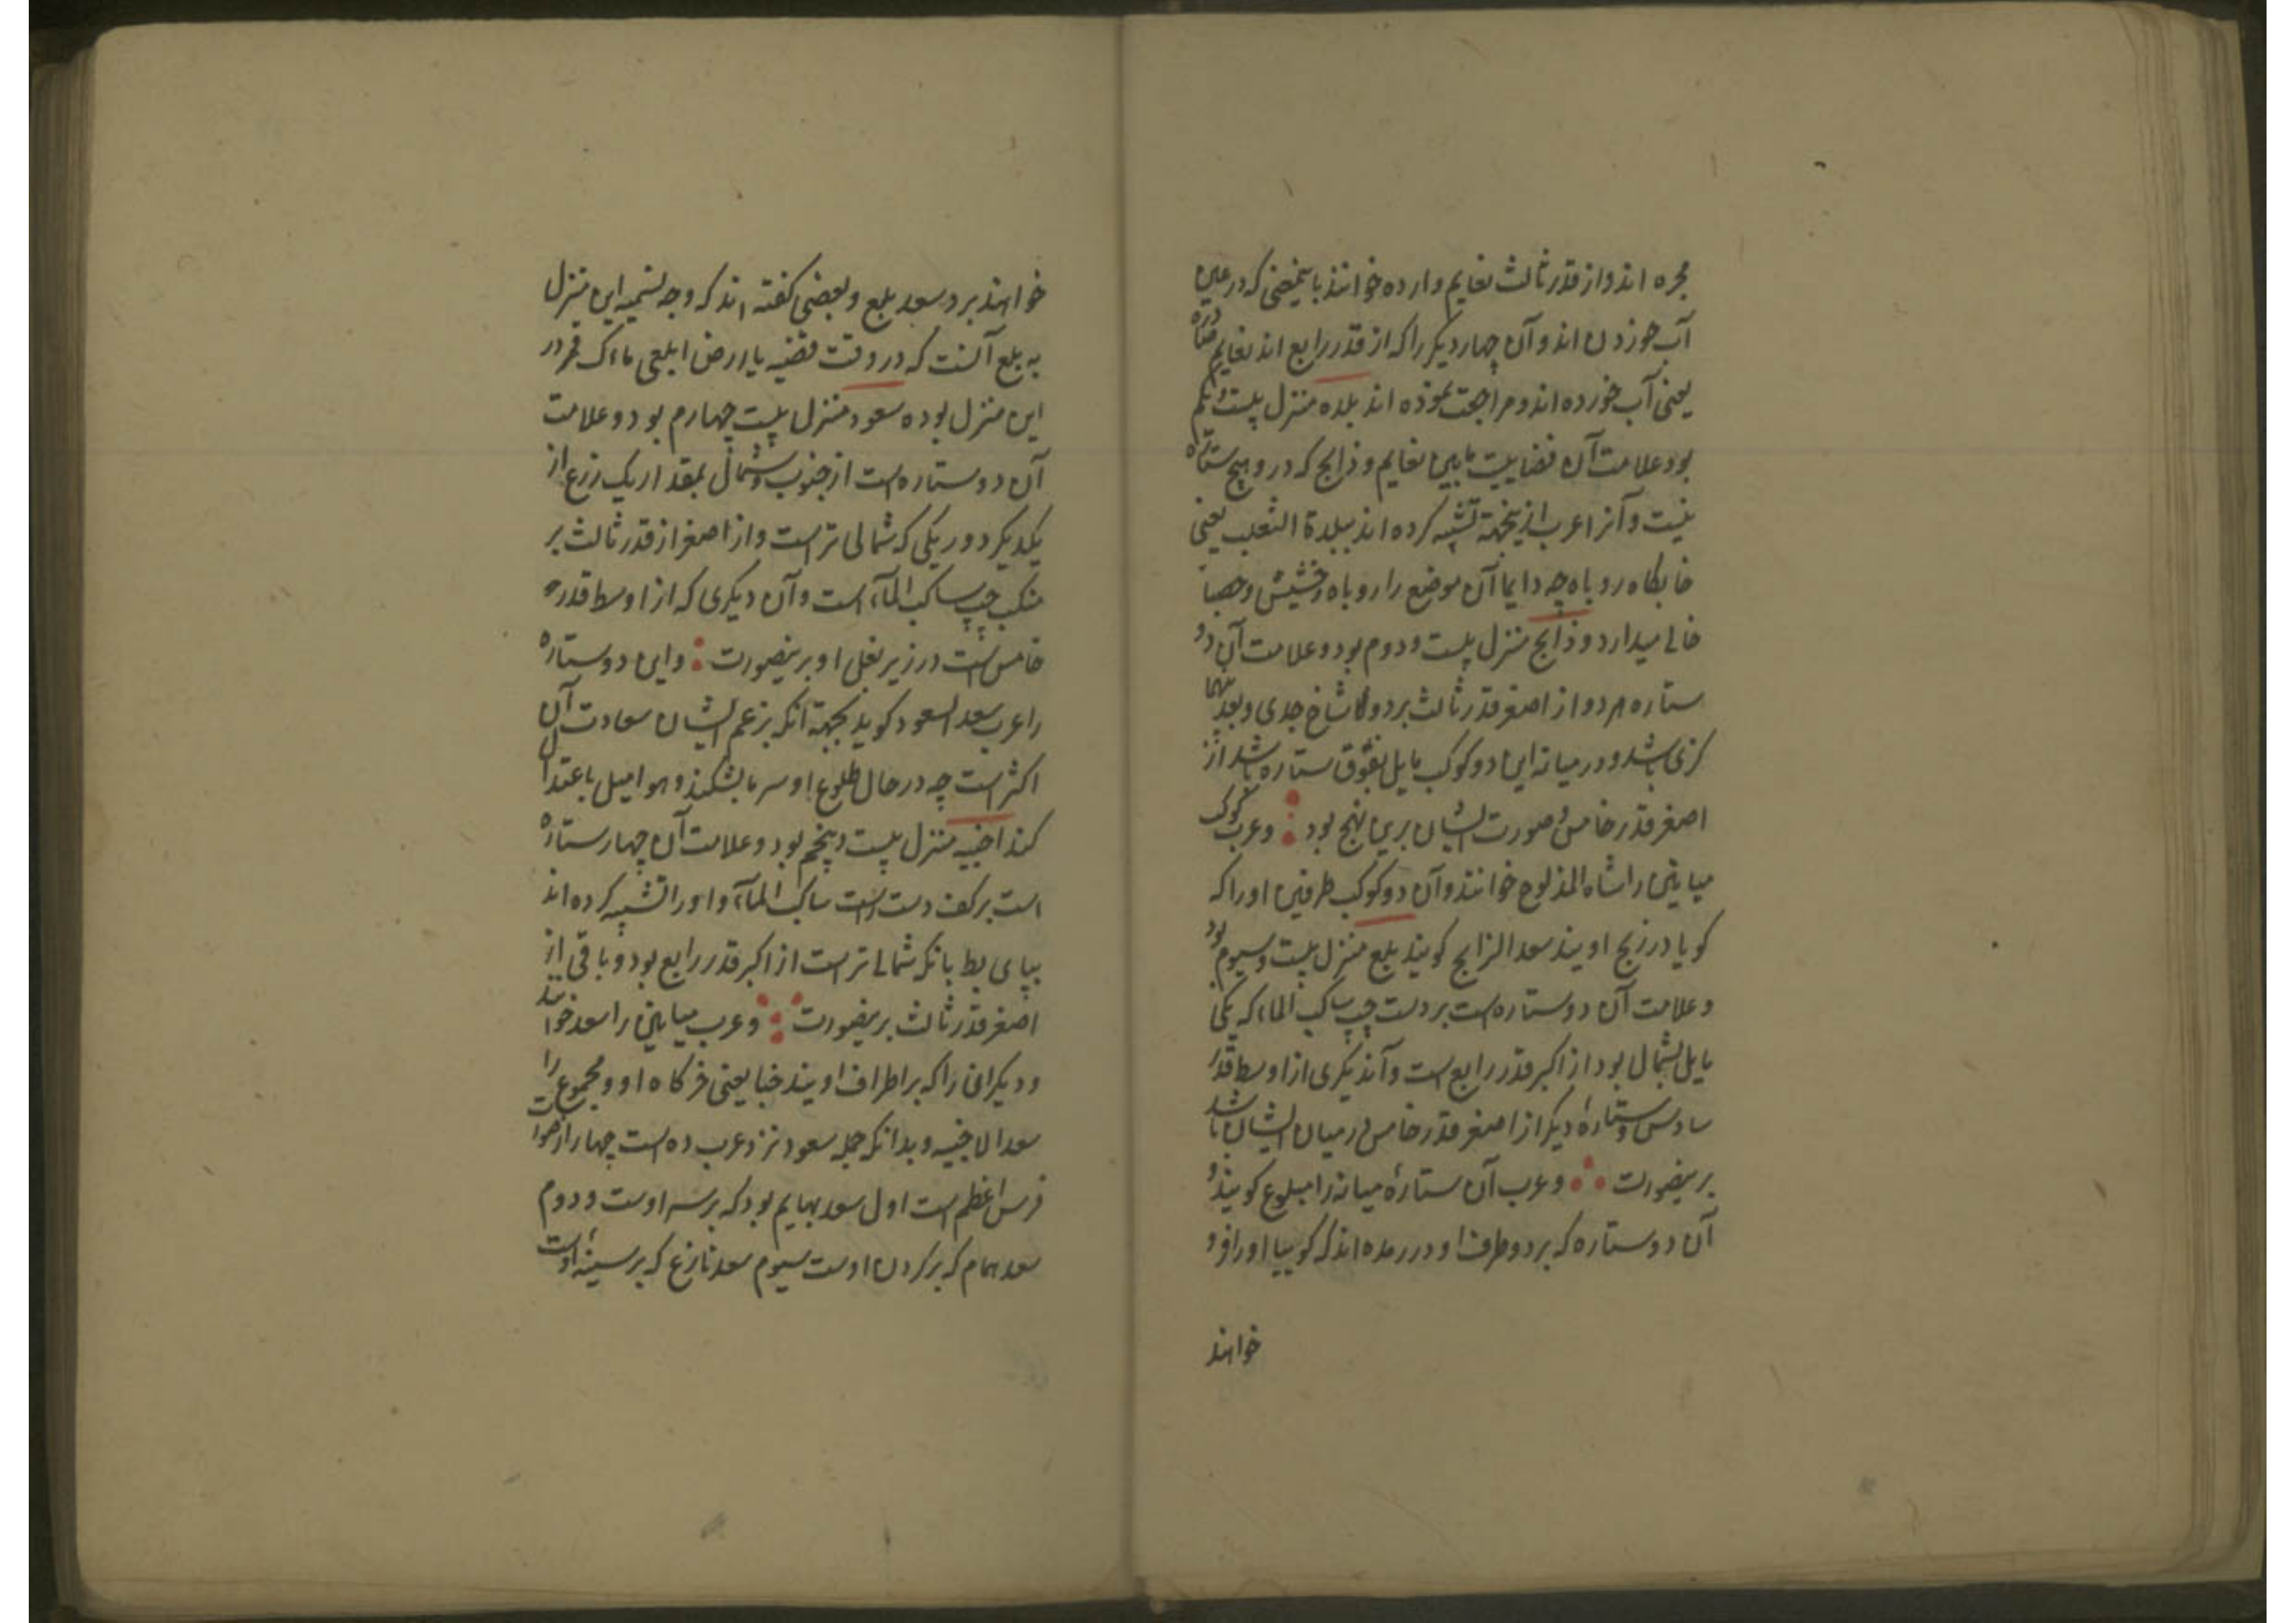 مجره اند و از قدر ثالث نعایم وارده خوانند باینمعنی که در عین
آب خوردن اند و آن چهار دیگر را که از قدر رابع اند نعایم صادره
یعنی آب خورده اند و مراجعت نموده اند بلده منزل بیست و یکم
بود علامت آن فضاییست مابین نعایم و ذابح که درو هیچ ستاره
نیست و آنرا عرب ازینجهة تشبیه کرده اند ببلدة الثعلب یعنی
خابگاه روباه چه دایما آن موضع را روباه از حشیش و حصبا
خالی میدارد و ذابح منزل بیست و دوم بود و علامت آن دو
ستاره هر دو از اصغر قدر ثالث بر دو شاخ جدی و بعد بینهما
گزی باشد و در میانه این دو کوکب مایل بفوق ستاره باشد از
اصغر قدر خامس و صورت ایشان برین نهج بود و عرب کوکب
میانین را شاه المذبوح خوانند و آن دو کوکب طرفین او را که
گویا در ذبح اویند سعد الذابح گویند بلع منزل بیست و سیوم بود
و علامت آن دو ستاره است بر دست چپ ساکب الماء که یکی
مایل بشمال بود از اکبر قدر رابع است و آندیگری از اوسط قدر
سادس و ستارهٔ دیگر از اصغر قدر خامس در میان ایشان باشد
برینصورت و عرب آن ستارهٔ میانه را مبلوع گویند و
آن دو ستاره که بر دو طرف او در رمده اند که گوییا او را فرو
خواهند
خواهند برد سعد بلع و بعضی گفته اند که وجه تسمیه این منزل
به بلع آنست که در وقت قضیه یا ارض ابلعی ماءک قمر در
این منزل بوده سعود منزل بیست چهارم بود و علامت
آن دو ستاره است از جنوب و شمال بمقدار یک زرع از
یکدیکر دور یکی که شمالی تر است و از اصغر از قدر ثالث بر
منکب چپ ساکب المآء است و آن دیگری که از اوسط قدر
خامس است در زیر بغل او برینصورت و این دو ستاره
را عرب سعد السعود گوید بجهة آنکه بزعم ایشان سعادت آن
اکثر است چه در حال طلوع او سرما بشکند و هوا میل باعتدال
کند اخبیه منزل بیست و پنجم بود و علامت آن چهار ستاره
است بر کف دست راست ساکب المآء و او را تشبیه کرده اند
بپای بط بانکه شمالی تر است از اکبر قدر رابع بود و باقی از
اصغر قدر ثالث برینصورت و عرب میانین را سعد خوانند
و دیگرانی را که بر اطراف اویند خبا یعنی خرگاه او و مجموع را
سعد الاخبیه و بدانکه جمله سعود نزد عرب ده است چهار از صوات
فرس اعظم است اول سعد بهایم بود که بر سر اوست و دوم
سعد همام که بر گردن اوست سیوم سعد نازع که بر سینهٔ اوست